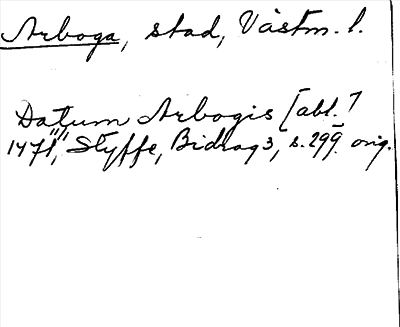 Arboga, stad, Västm. l.
Datum Arbogis [abl.]
1471, Styffe, Bidrag 3, s. 299. orig.